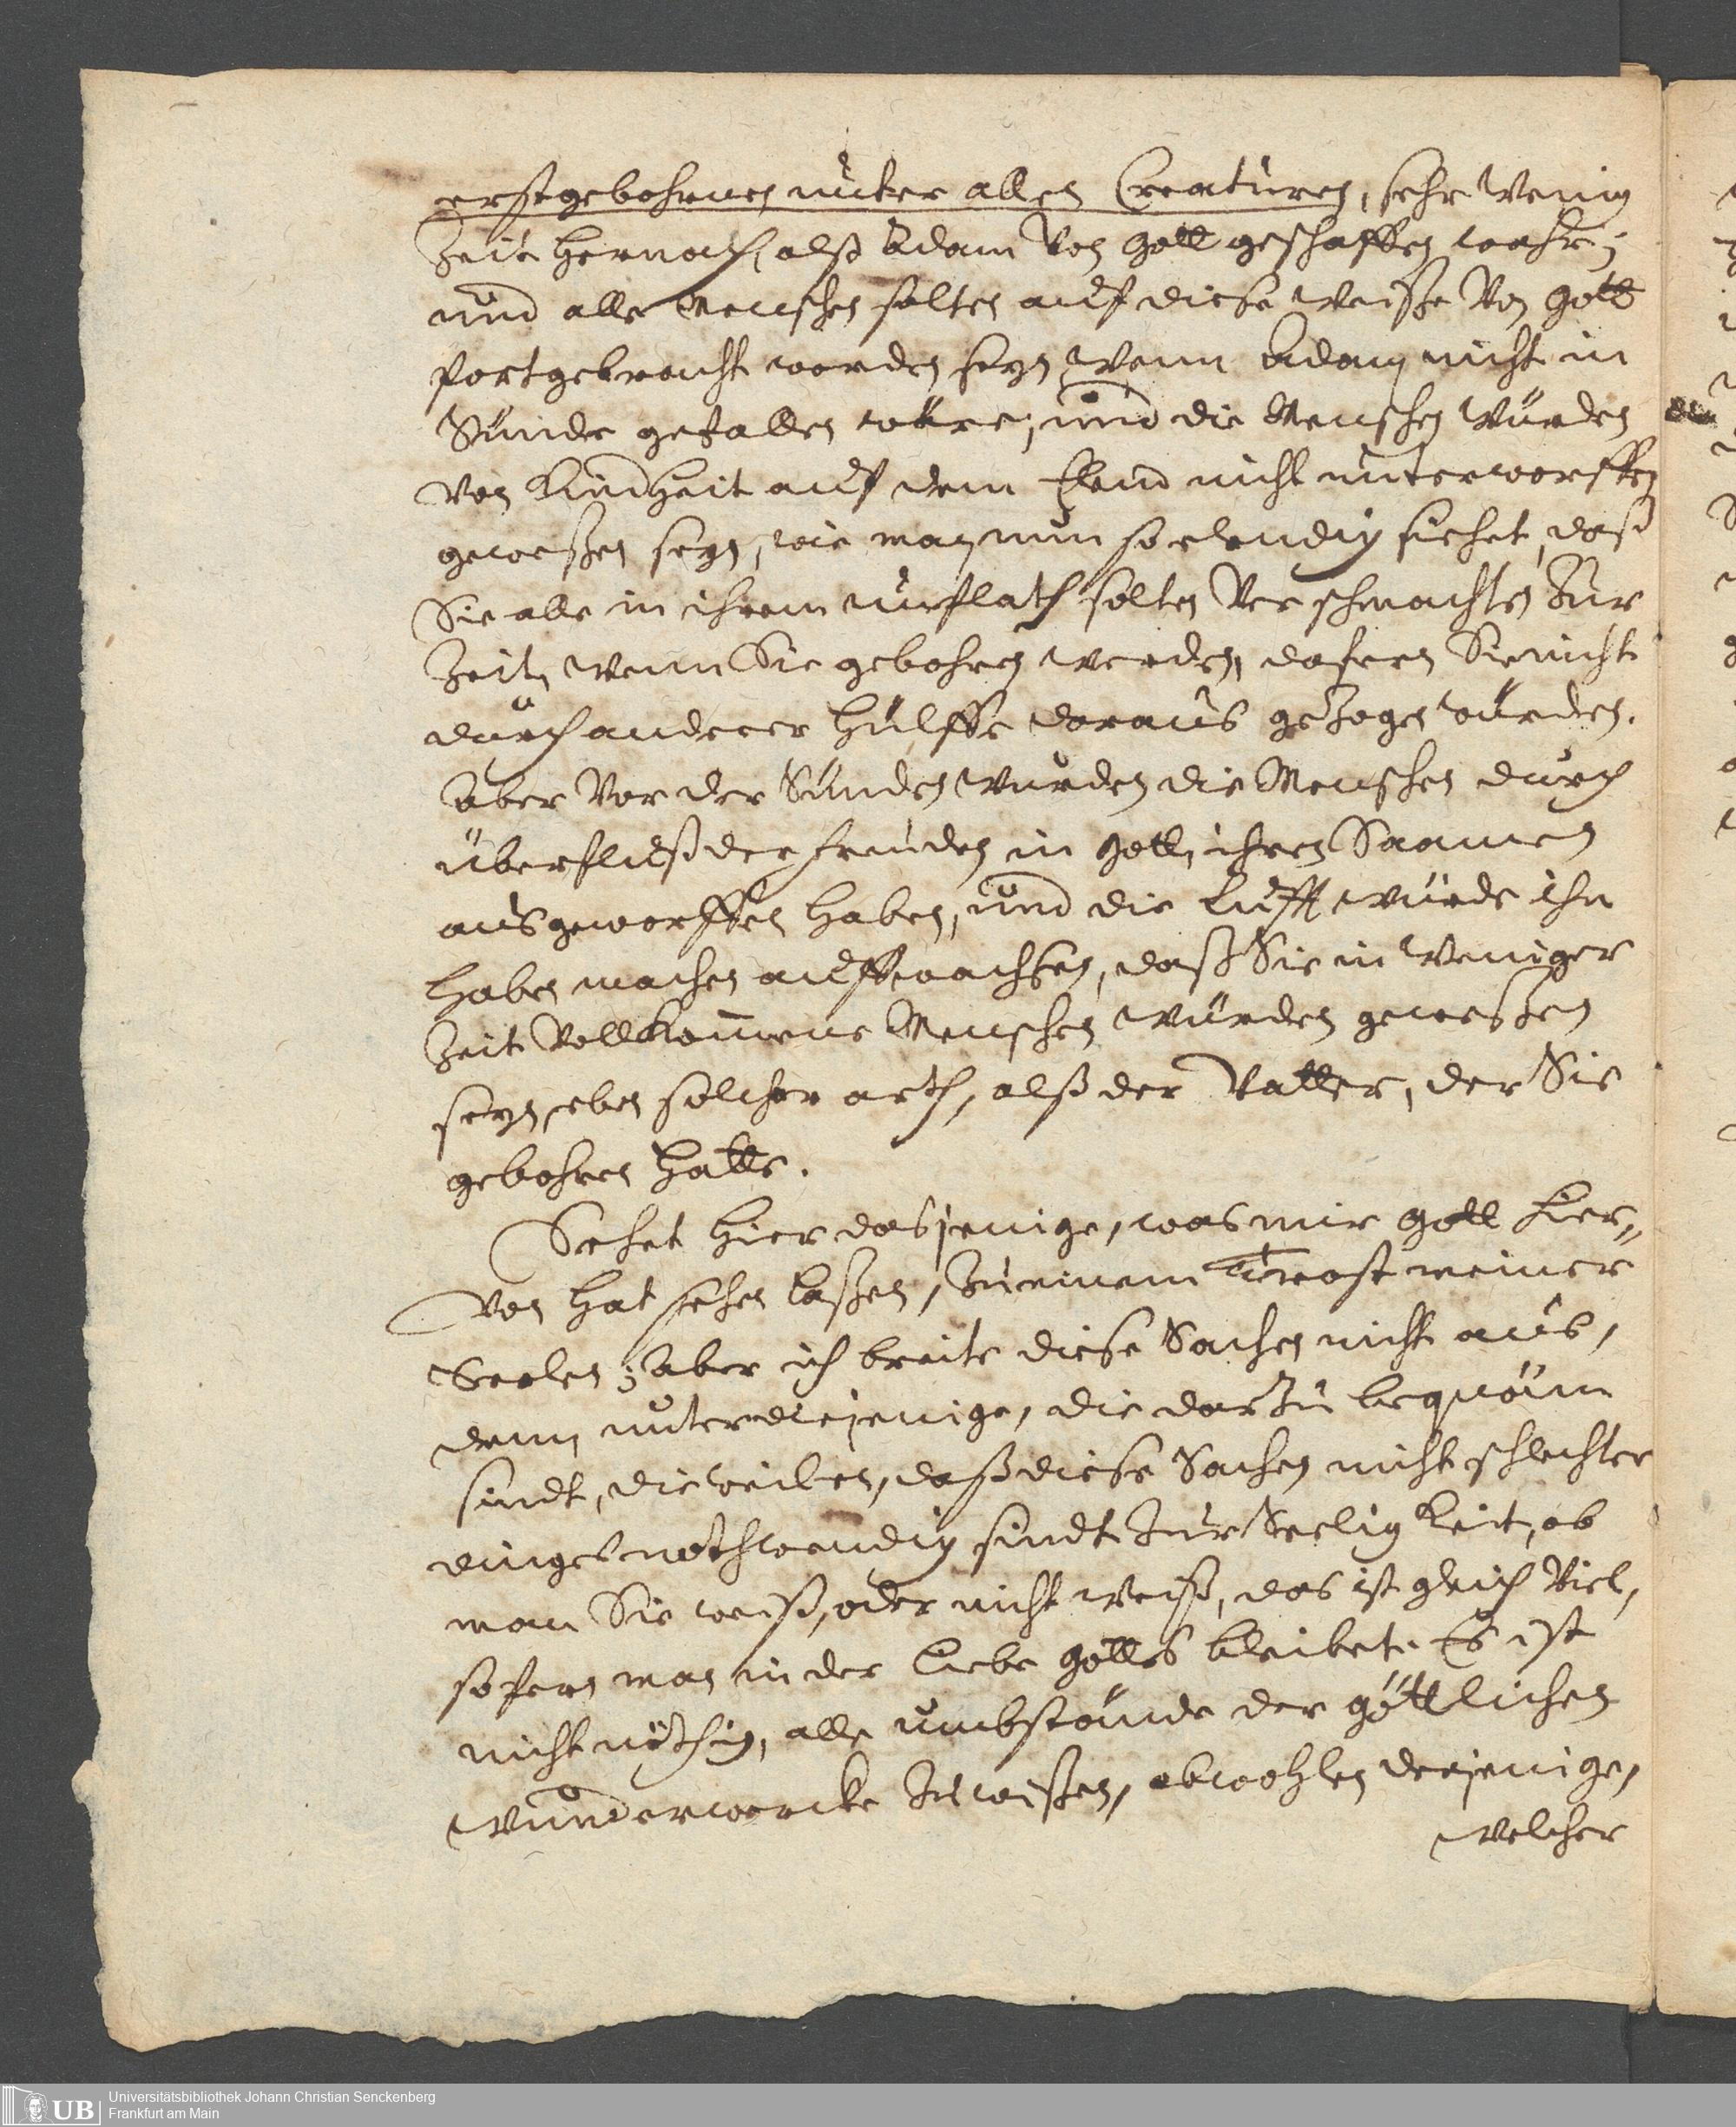 erstgebohrnen unter allen Creaturen, sehr wenig
Zeit hernach, alß Adam von Gott geschaffen wahr;
und alle Menschen solten auf diese weiße von Gott
fortgebracht worden seyn, wenn Adam nicht in
Sünde gefallen wäre; und die Menschen würden
von Kindheit auf dem Elend nicht unterworffen
geweßen seyn, wie man nun so elendig siehet, daß
Sie alle in ihrem unflath solten verschmachten zur
Zeit, wenn Sie gebohren werden, dafern Sie nicht
durch anderer hülffe daraus gezogen würden.
Aber vor der Sünden wurden die Menschen durch
überfluß der freuden in Gott, ihren Saamen
ausgeworffen haben, und die Lufft würde ihn
haben machen auffwachßen, daß Sie in weniger
Zeit vollkommene Menschen würden geweßen
seyn, eben solcher arth, alß der Vatter, der Sie
gebohren hatte.
Sehet hier dasjenige, was mir Gott hier„
von hat sehen laßen, zu einem Trost meiner
Seelen; Aber ich breite diese Sachen nicht aus,
denn unter diejenige, die darzu bequäm
sindt, dieweilen, daß diese Sachen nicht schlechter
dinges nothwendig sindt zur Seeligkeit, ob
man Sie weiß, oder nicht weiß, das ist gleich viel,
sofern man in der Liebe Gottes bleibet. Es ist
nicht nöthig, alle umbstände der göttlichen
wunderwercke zu wißen, obwohlen derjenige,
welcher
Universitätsbibliothek Johann Christian Senckenberg
Frankfurt am Main
UB